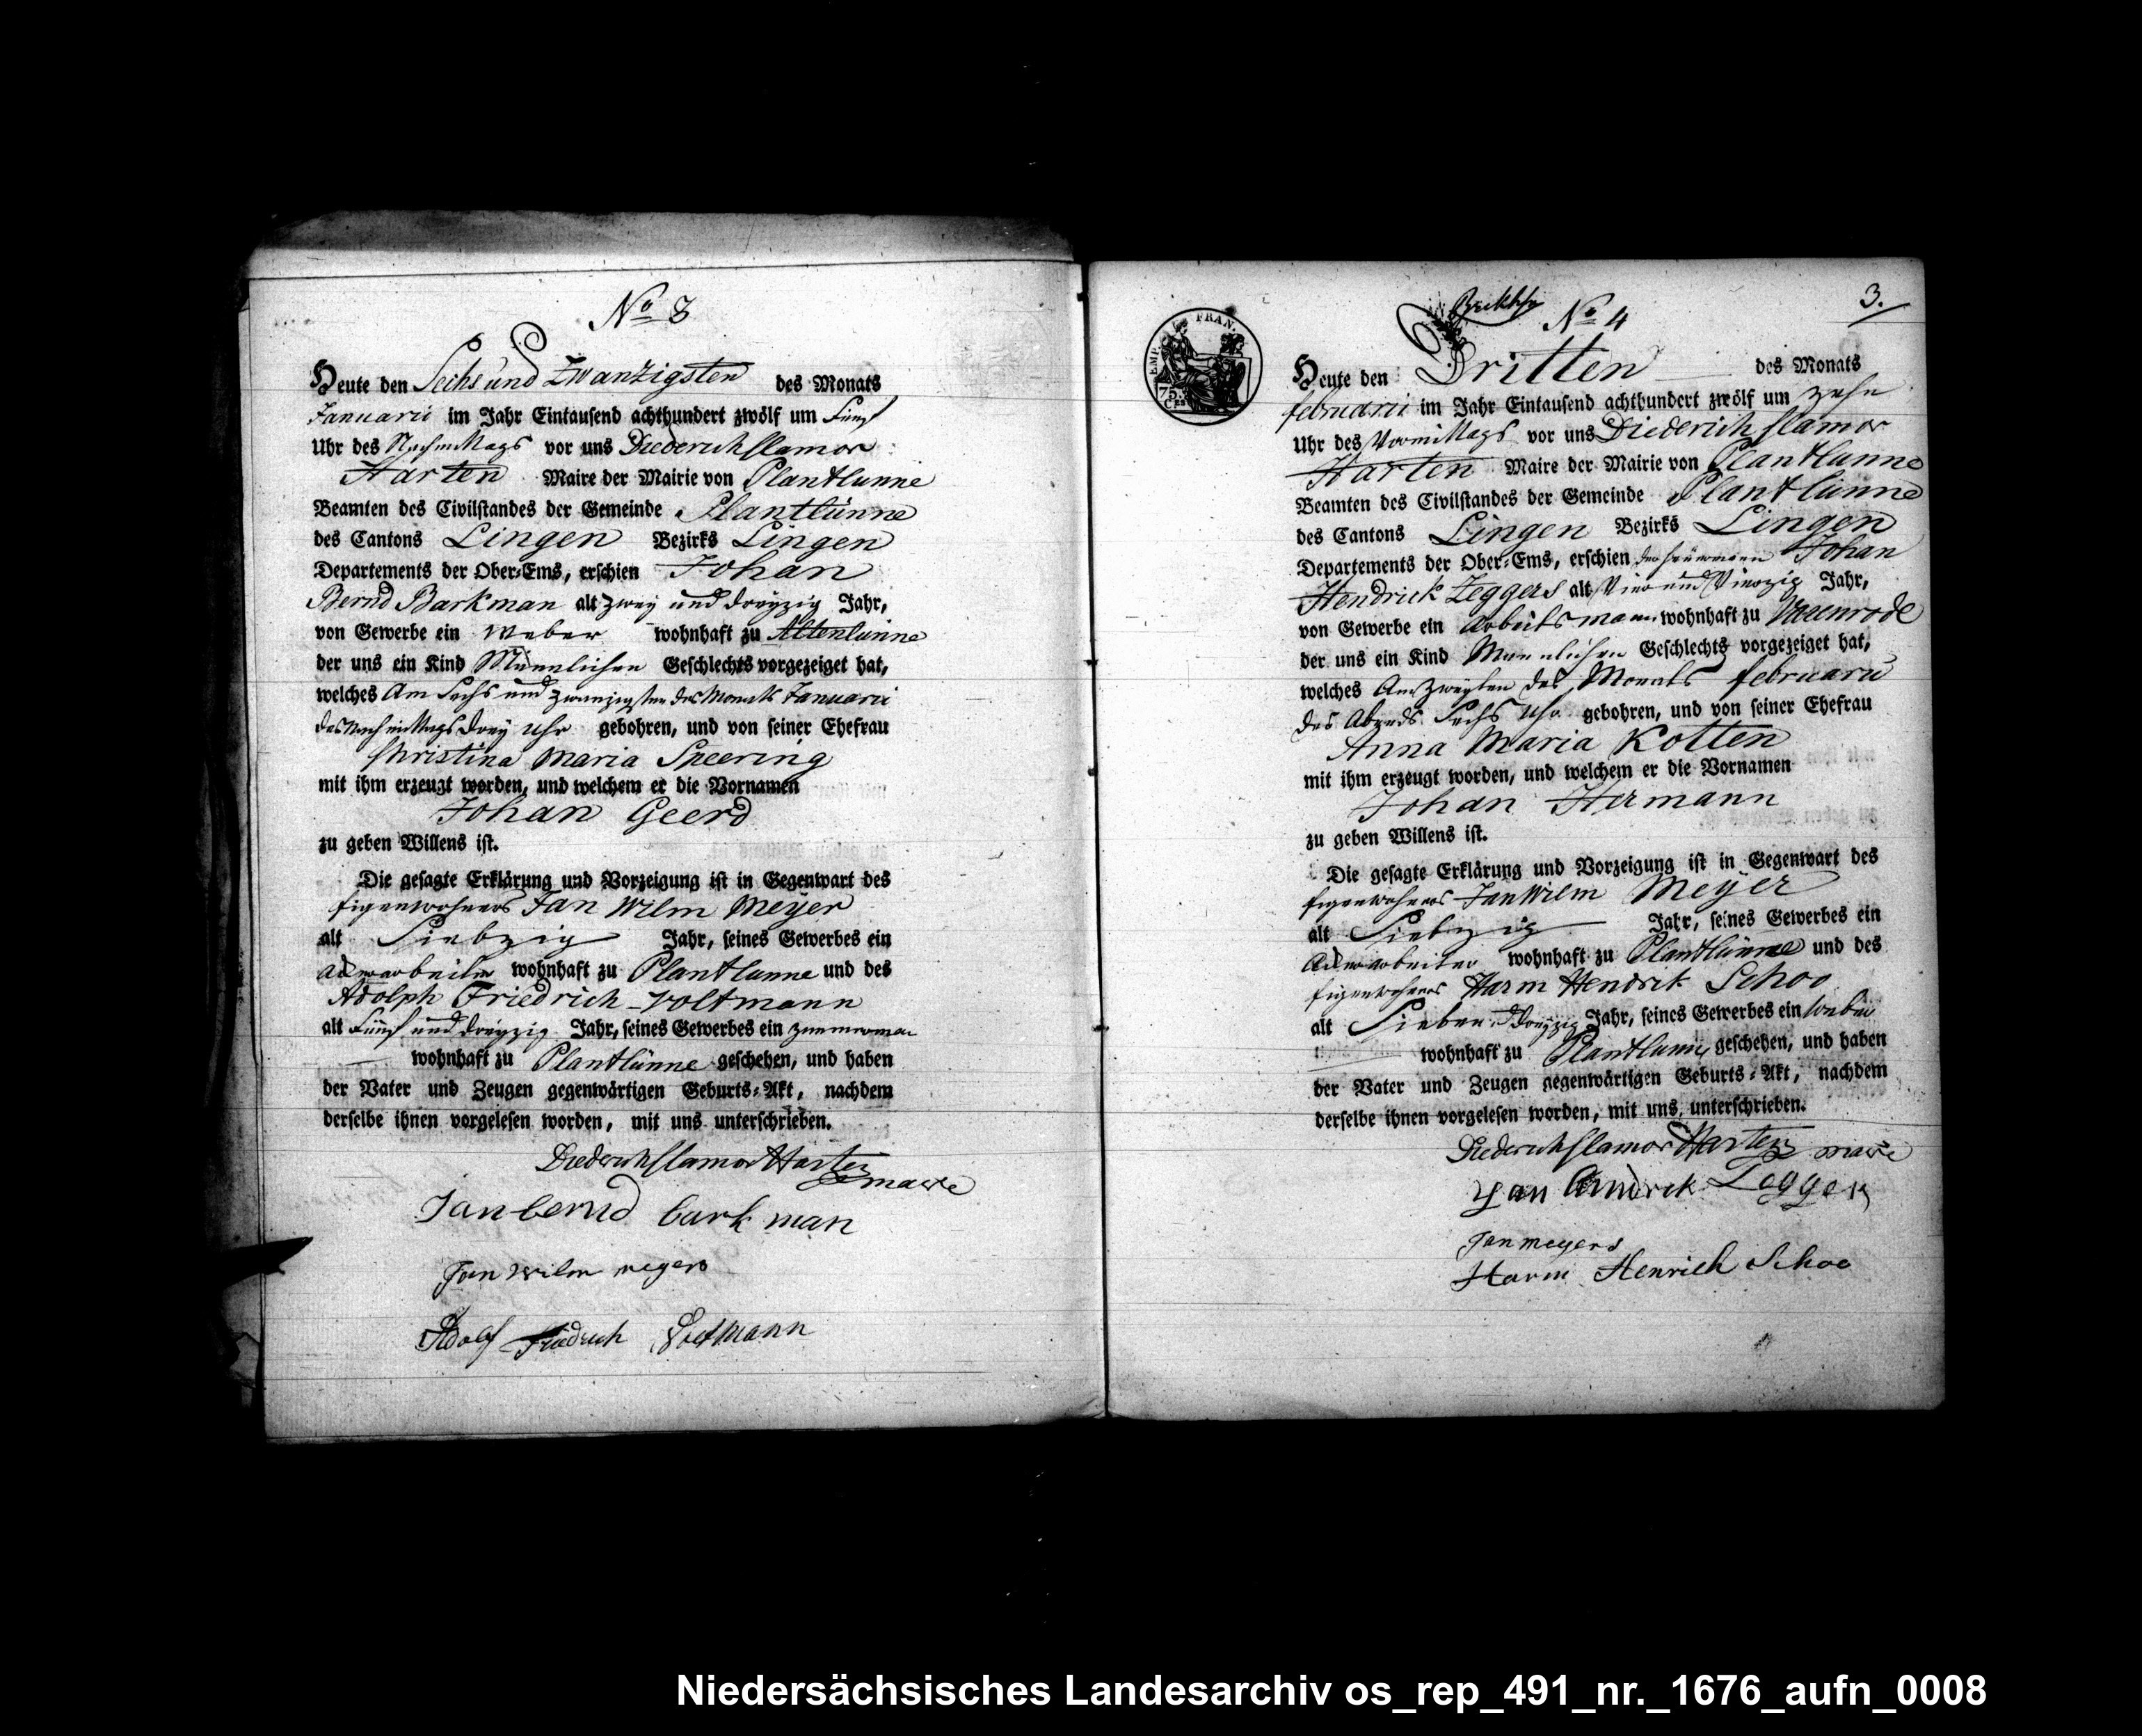 No 3
Heute den Sechs und Zwanzigsten des Monats
Januarii im Jahr Eintausend achthundert zwölf um Fünf
Uhr des Nachmittags vor uns Diederich Slamor
Harten Maire der Mairie von Plantlunne
Beamten des Civilstandes der Gemeinde Plantlünne
des Cantons Lingen Bezirks Lingen
Departements der Ober-Ems, erschien Johan
Bernd Barkman alt zwey und dreyzig Jahr,
von Gewerbe ein Weber wohnhaft zu Altenlünne
der uns ein Kind Männlichen Geschlechts vorgezeiget hat,
welches Am Sechs und zwanzigsten des Monats Januarii
des Nachmittags drey Uhr gebohren, und von seiner Ehefrau
Christina Maria Speering
mit ihm erzeugt worden, und welchem er die Vornamen
Johan Geerd
zu geben Willens ist.
Die gesagte Erklärung und Vorzeigung ist in Gegenwart des
Eigenwohners Jan Wilm Meyer
alt Siebzig Jahr, seines Gewerbes ein
Ackerarbeiter wohnhaft zu Plantlunne und des
Adolph Friedrich Voltmann
alt Fünf und dreyzig Jahr, seines Gewerbes ein
wohnhaft zu Plantlünne geschehen, und haben
der Vater und Zeugen gegenwärtigen Geburts-Akt, nachdem
derselbe ihnen vorgelesen worden, mit uns unterschrieben.
Diederich Slamor Harten
maire
Jan bernd bark man
Jan Wilm meyers
Adolf Friedrich Voltmann
3.
No 4
EMP. FRAN.
75. Ces
Heute den Dritten des Monats
februarii im Jahr Eintausend achthundert zwölf um zehn
Uhr des Vormittags vor uns Diederich Slamor
Harten Maire der Mairie von Plantlunne
Beamten des Civilstandes der Gemeinde Plantlünne
des Cantons Lingen Bezirks Lingen
Departements der Ober-Ems, erschien der Heuermann Johan
Hendrick Zeggers alt Vier und Vierzig Jahr,
von Gewerbe ein Arbeitsmann wohnhaft zu Veenrode
der uns ein Kind Mannlichen Geschlechts vorgezeiget hat,
welches Am Zweyten des Monats februarii
des Abends Sechs Uhr gebohren, und von seiner Ehefrau
Anna Maria Kotten
mit ihm erzeugt worden, und welchem er die Vornamen
Johan Hermann
zu geben Willens ist.
Die gesagte Erklärung und Vorzeigung ist in Gegenwart des
Eigenwohners Jan Wilm Meyer
alt Siebzig Jahr, seines Gewerbes ein
Ackerarbeiter wohnhaft zu Plantlünne und des
Eigenwohners Harm Hendrik Schoo
alt Sieben dreyzig Jahr, seines Gewerbes ein Weber
wohnhaft zu Plantlunne geschehen, und haben
der Vater und Zeugen gegenwärtigen Geburts-Akt, nachdem
derselbe ihnen vorgelesen worden, mit uns unterschrieben.
Diederich Slamor Harten maire
Jan Hindrick Zegger
Jan meyers
Harm Henrich Schoo
Niedersächsisches Landesarchiv os_rep_491_nr._1676_aufn_0008